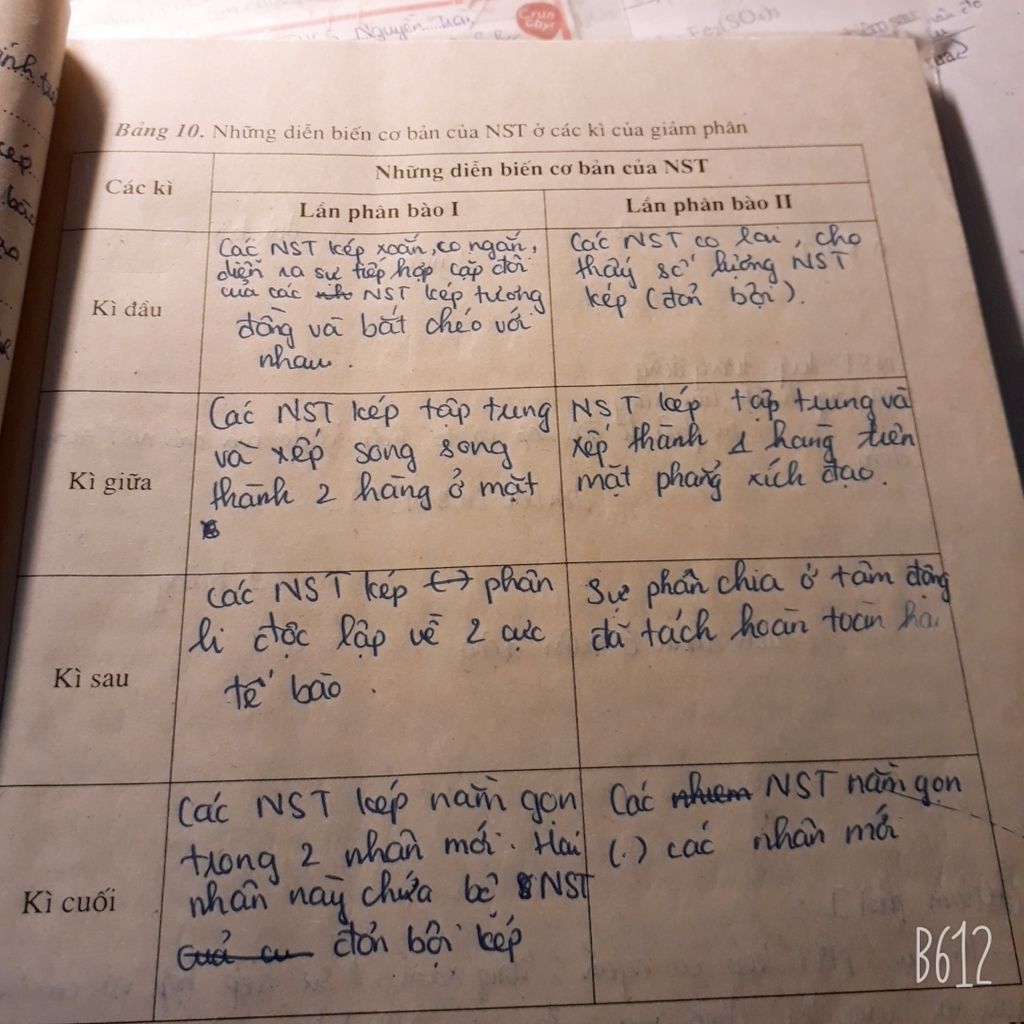 Nguyễn
Crun
Fe2(SO4)3
Bảng 10. Những diễn biến cơ bản của NST ở các kì của giảm phân
Các kì
Những diễn biến cơ bản của NST
Lần phân bào I
Lần phân bào II
Kì đầu
Các NST kép xoắn, co ngắn,
diễn ra sự tiếp hợp cặp đôi
của các NST kép tương
đồng và bắt chéo với
nhau.
Các NST co lai, cho
thấy số lượng NST
kép (đơn bội).
Kì giữa
Các NST kép tập trung
và xếp song song
thành 2 hàng ở mặt
NST kép tập trung và
xếp thành 1 hàng trên
mặt phẳng xích đạo.
Kì sau
Các NST kép ↔ phân
li độc lập về 2 cực
tế bào.
Sự phân chia ở tâm động
đã tách hoàn toàn ha
Kì cuối
Các NST kép nằm gọn
trong 2 nhân mới. Hai
nhân này chứa bộ NST
đơn bội kép
Các NST nằm gọn
(.) các nhân mới
B612